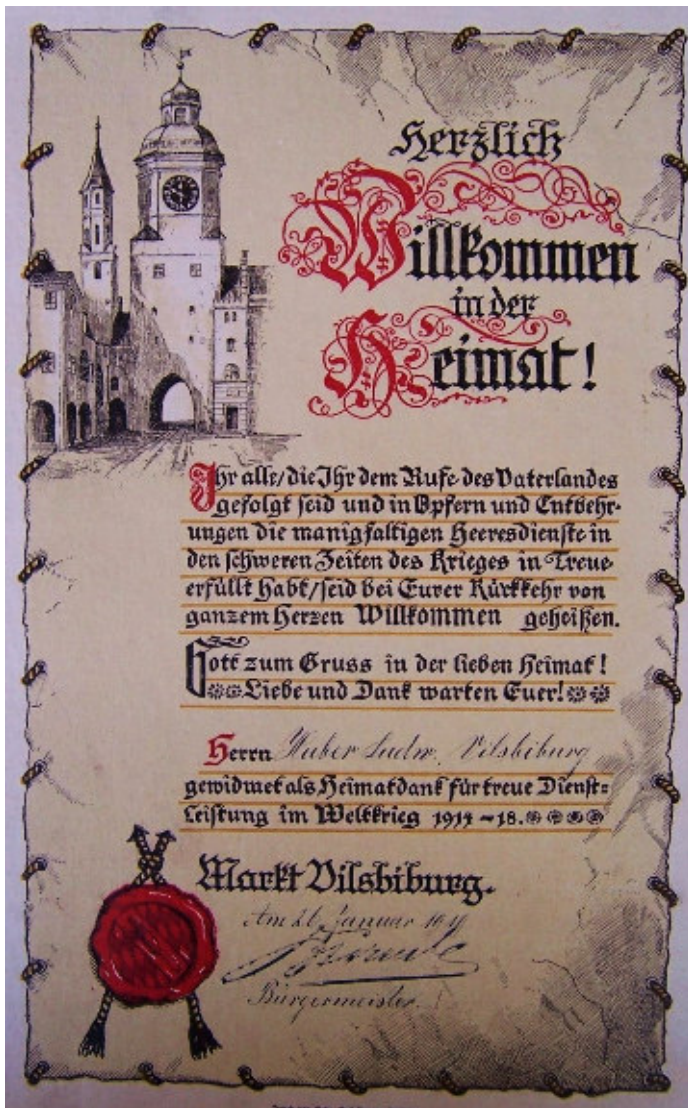 Herzlich
Willkommen
in der
Heimat!
Ihr alle/die Ihr dem Rufe des Vaterlandes
gefolgt seid und in Opfern und Entbehr-
ungen die manigfaltigen Heeresdienste in
den schweren Zeiten des Krieges in Treue
erfüllt habt/seid bei Eurer Rückkehr von
ganzem Herzen Willkommen geheißen.
Gott zum Gruss in der lieben Heimat!
Liebe und Dank warten Euer!
Herrn Huber Ludw. Vilsbiburg
gewidmet als Heimatdank für treue Dienst=
Leistung im Weltkrieg 1914-18.
Markt Vilsbiburg.
Am 21. Januar 1919
Bürgermeister.